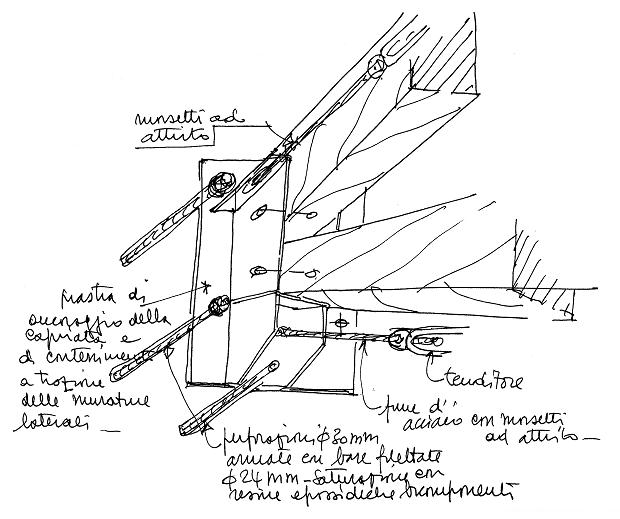 morsetti ad
attrito
piastra di
ancoraggio della
capriata e
di contenimento
a trazione
delle murature
laterali _
tenditore
fune d'
acciaio con morsetti
ad attrito _
perforazioni φ 30 mm
armate con barre filettate
φ 24 mm - Saturazione con
resine epossidiche bicomponenti